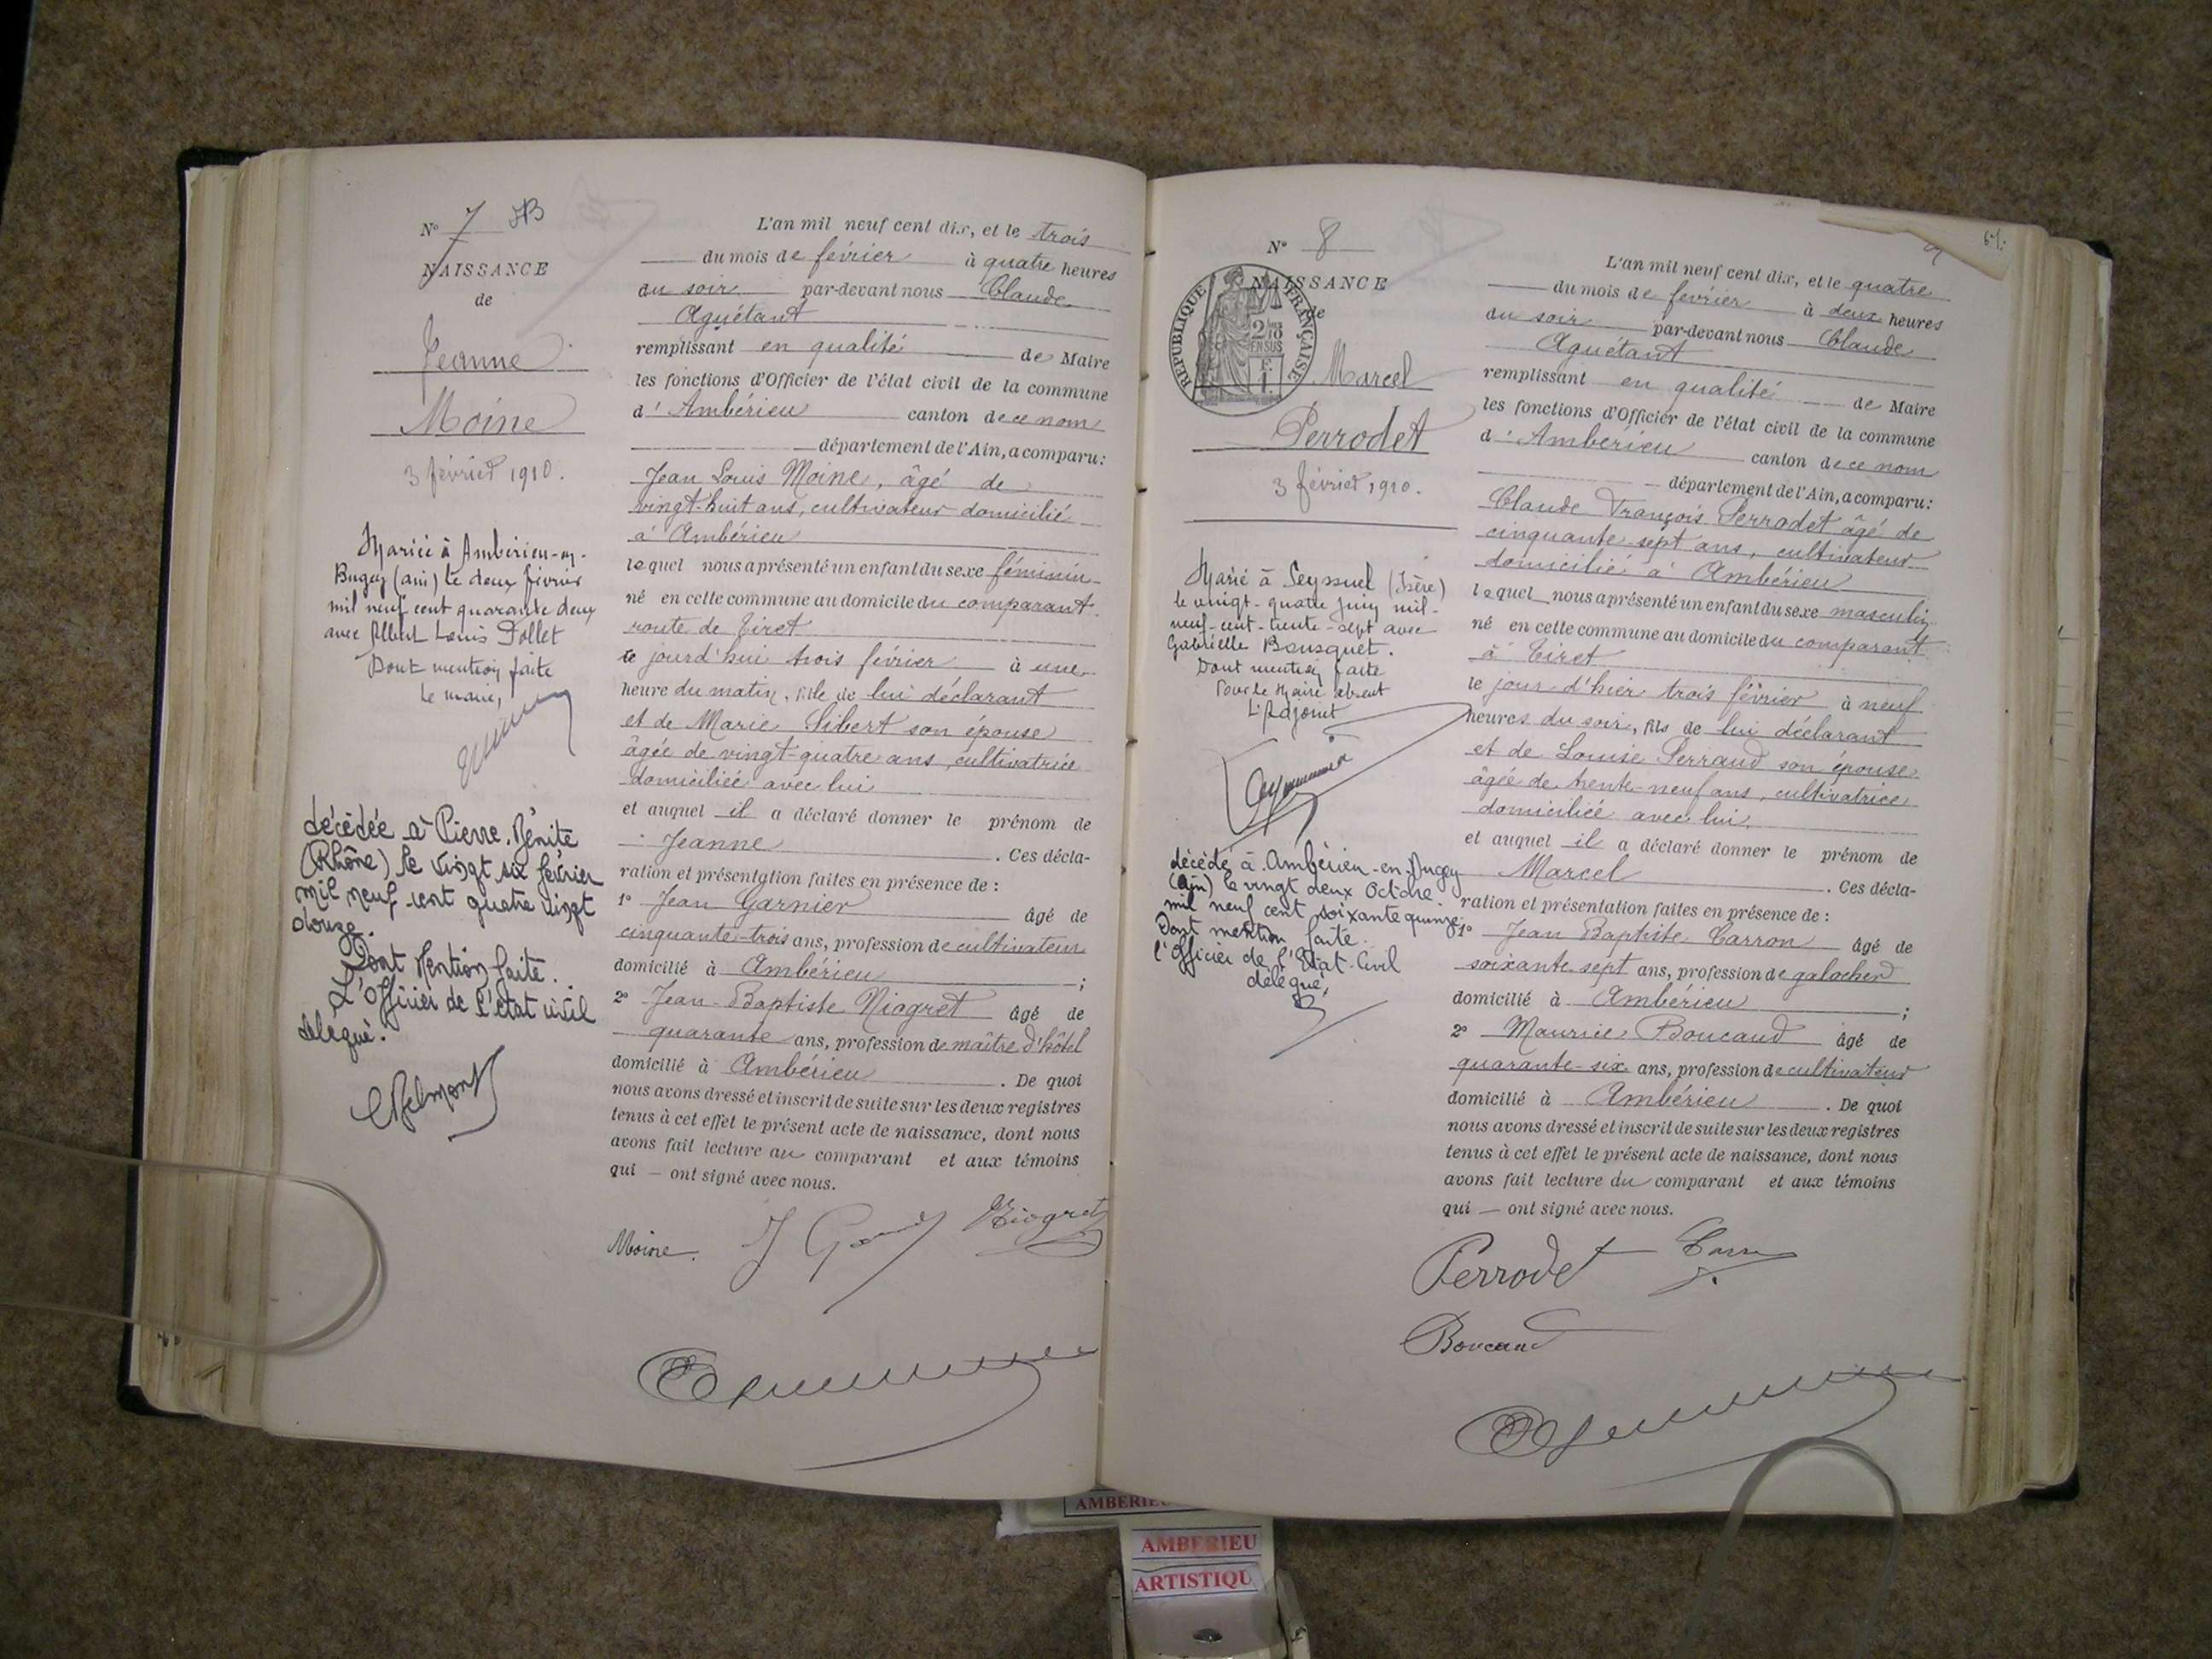 N° 7 JB
NAISSANCE
de
Jeanne
Moine
3 février 1910.
Mariée à Ambérieu-en-
Bugey (ain) le deux février
mil neuf cent quarante deux
avec Albert Louis Follet
Dont mention faite
Le maire,
décédée à Pierre-Bénite
(Rhône) le vingt six février
mil neuf cent quatre vingt
douze.
Dont Mention faite.
L'officier de l'état civil
délégué.
L'an mil neuf cent dix, et le trois
du mois de février à quatre heures
du soir par-devant nous Claude
Aguétant
remplissant en qualité de Maire
les fonctions d'Officier de l'état civil de la commune
d'Ambérieu canton de ce nom
département de l'Ain, a comparu:
Jean Louis Moine, âgé de
vingt-huit ans, cultivateur domicilié
à Ambérieu
lequel nous a présenté un enfant du sexe féminin
né en cette commune au domicile du comparant
route de Tiret
ce jourd'hui trois février à une
heure du matin, fille de lui déclarant
et de Marie Sibert son épouse
âgée de vingt-quatre ans, cultivatrice
domiciliée avec lui
et auquel il a déclaré donner le prénom de
Jeanne . Ces décla-
ration et présentation faites en présence de :
1° Jean Garnier âgé de
cinquante-trois ans, profession de cultivateur
domicilié à Ambérieu ;
2° Jean-Baptiste Niogret âgé de
quarante ans, profession de maître d'hôtel
domicilié à Ambérieu . De quoi
nous avons dressé et inscrit de suite sur les deux registres
tenus à cet effet le présent acte de naissance, dont nous
avons fait lecture au comparant et aux témoins
qui — ont signé avec nous.
Moine. Niogret
N° 8
NAISSANCE
de
RÉPUBLIQUE FRANÇAISE
2/10 EN SUS
F.
1.
Marcel
Perrodet
3 février 1910.
Marié à Seyssuel (Isère)
le vingt-quatre juin mil-
neuf-cent-trente-sept avec
Gabrielle Bousquet.
Dont mention faite
Pour le Maire absent
L'Adjoint
décédé à Ambérieu-en-Bugey
(Ain) le vingt deux Octobre
mil neuf cent soixante quinze.
Dont mention faite.
l'Officier de l'Etat-Civil
délégué,
L'an mil neuf cent dix, et le quatre
du mois de février à deux heures
du soir par-devant nous Claude
Aguétant
remplissant en qualité de Maire
les fonctions d'Officier de l'état civil de la commune
d'Ambérieu canton de ce nom
département de l'Ain, a comparu:
Claude François Perrodet âgé de
cinquante-sept ans, cultivateur
domicilié à Ambérieu
lequel nous a présenté un enfant du sexe masculin
né en cette commune au domicile du comparant
à Tiret
le jour d'hier trois février à neuf
heures du soir, fils de lui déclarant
et de Louise Perraud son épouse
âgée de trente-neuf ans, cultivatrice
domiciliée avec lui
et auquel il a déclaré donner le prénom de
Marcel . Ces décla-
ration et présentation faites en présence de :
1° Jean Baptiste Carron âgé de
soixante sept ans, profession de galocher
domicilié à Ambérieu ;
2° Maurice Boucaud âgé de
quarante-six ans, profession de cultivateur
domicilié à Ambérieu . De quoi
nous avons dressé et inscrit de suite sur les deux registres
tenus à cet effet le présent acte de naissance, dont nous
avons fait lecture du comparant et aux témoins
qui — ont signé avec nous.
Perrodet
Boucaud
AMBERIEU
ARTISTIQU